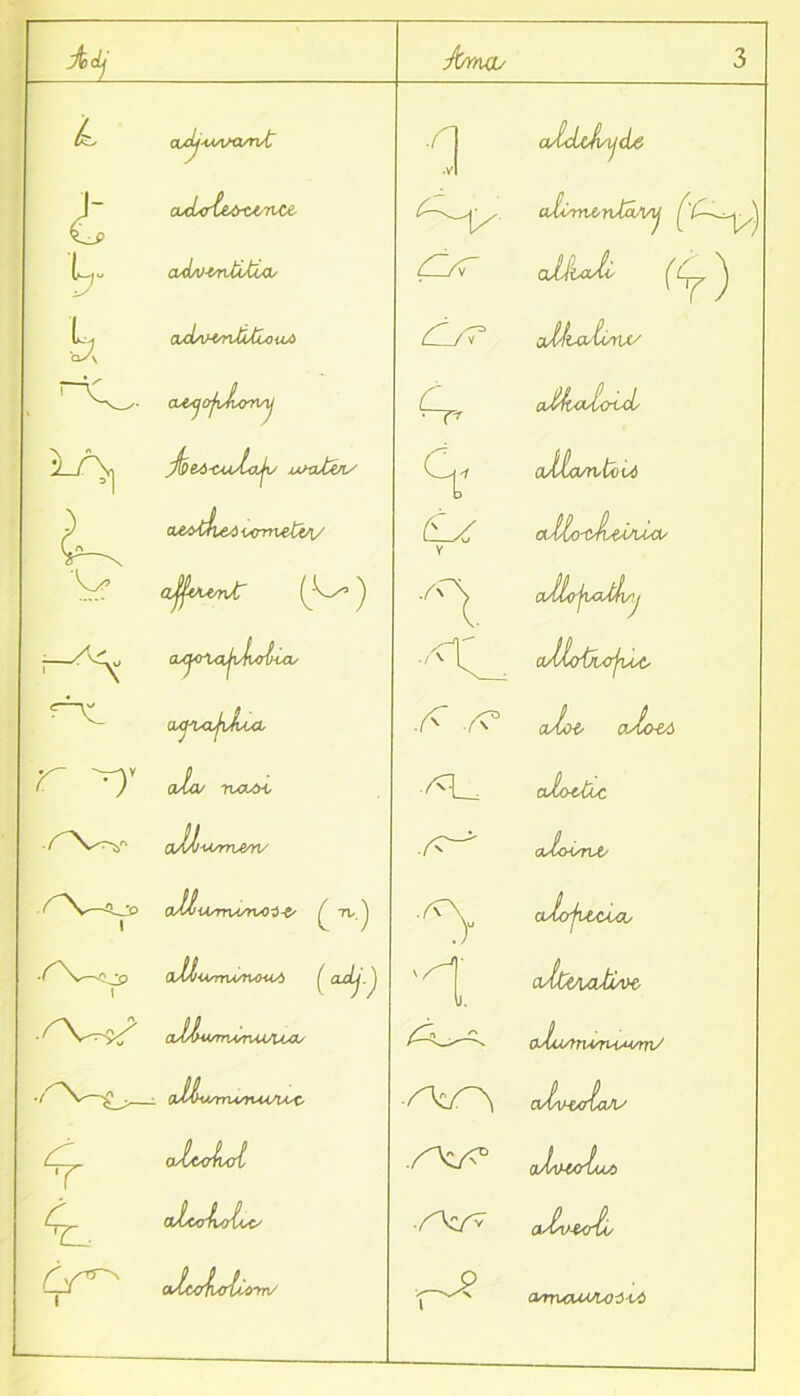 Adj
Ama 3
adjuvant
adolescence
adventitia
adventitious
aegophony
Aesculap water
aesthesiometer
afferent ( )
agoraphobia
agraphia
ala nasi
albumen
albuminose (n.)
albuminous (adj.)
albuminuria
albuminuric
alcohol
alcoholic
alcoholism
aldehyde
alimentary ( )
alkali ( )
alkaline
alkaloid
allantois
allocheiria
allopathy
allotropic
aloe aloes
aloetic
aloine
alopecia
alterative
aluminium
alveolar
alveolus
alveoli
amaurosis